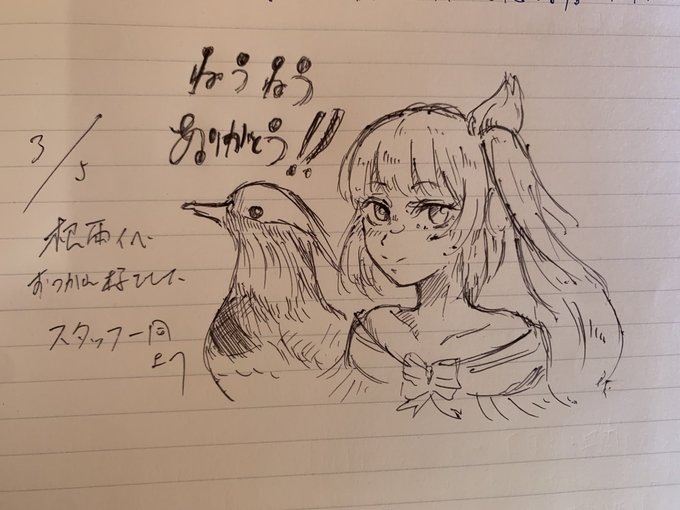 ねうねう
ありがとう!!
3/5
根雨イベ
おつかれ様でした
スタッフ一同
より